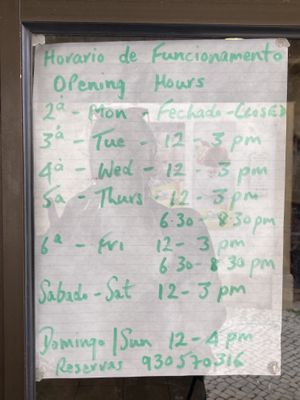 Horario de Funcionamento
Opening Hours
2ª - Mon - Fechado - Closed
3ª - Tue - 12 - 3 pm
4ª - Wed - 12 - 3 pm
5a - Thurs 12 - 3 pm
6.30 - 8.30 pm
6ª - Fri 12 - 3 pm
6.30 - 8.30 pm
Sabado - Sat 12 - 3 pm
Domingo / Sun 12 - 4 pm
Reservas 930 570 316